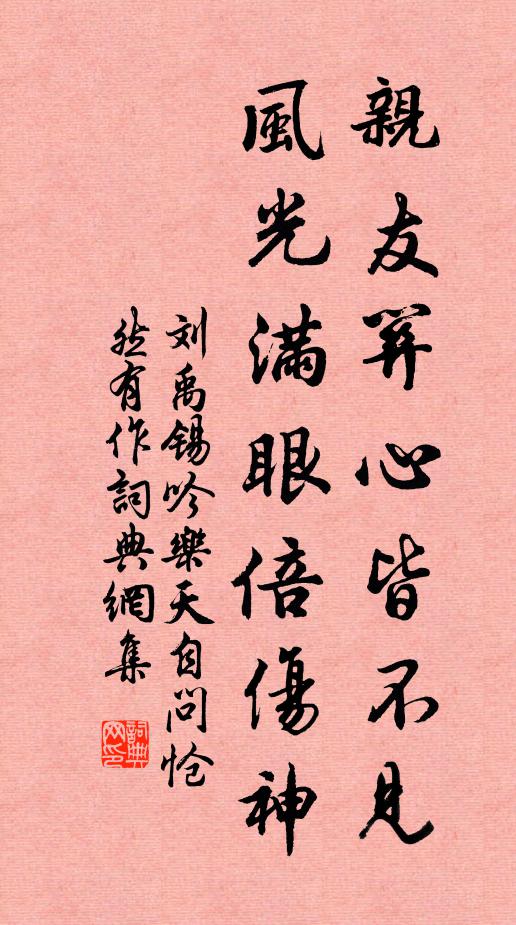 親友關心皆不見
風光滿眼倍傷神
刘禹錫吟樂天自問怆
然有作詞典網集
詞典
网印